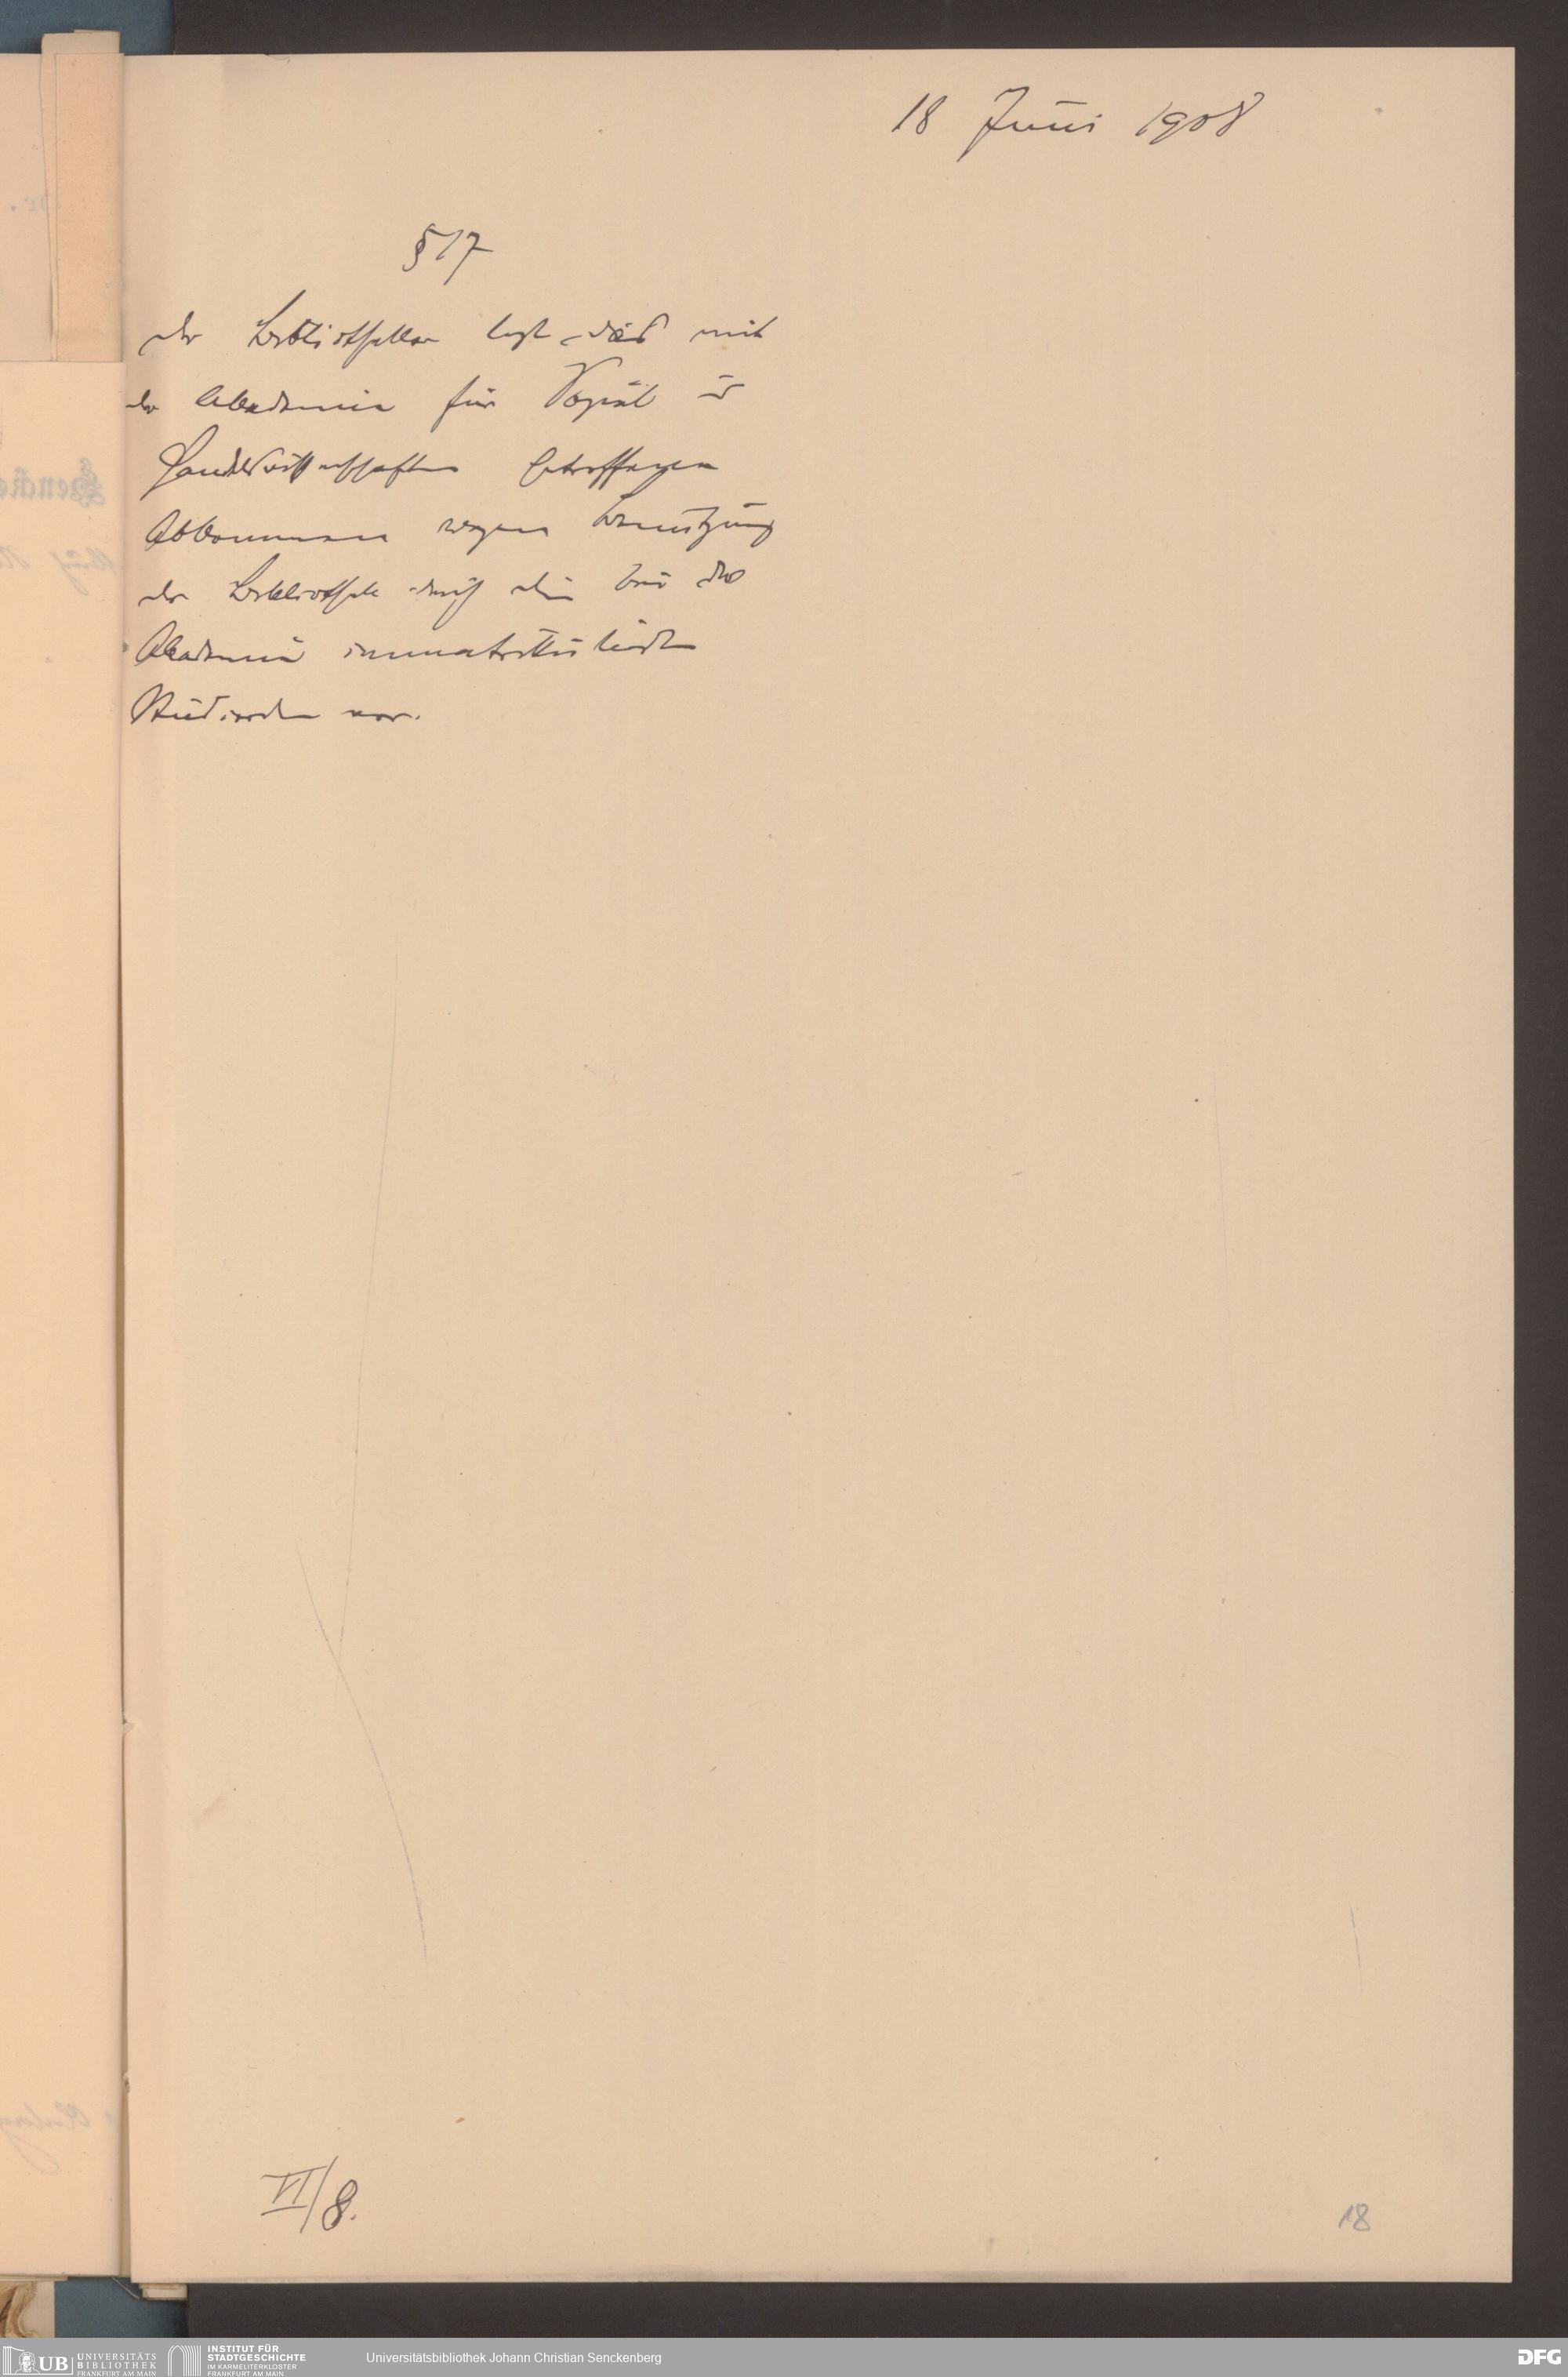 18 Juni 1908
§ 17
der Bibliothekar legt das mit
der Akademie für Sozial u
Handelswissenschaften getroffenen
Abkommen wegen Benutzung
der Bibliothek durch die bei der
Akademie immatrikulierten
Studierenden vor.
VI/8.
18
UB UNIVERSITÄTS
BIBLIOTHEK
FRANKFURT AM MAIN
INSTITUT FÜR
STADTGESCHICHTE
IM KARMELITERKLOSTER
FRANKFURT AM MAIN
Universitätsbibliothek Johann Christian Senckenberg
DFG